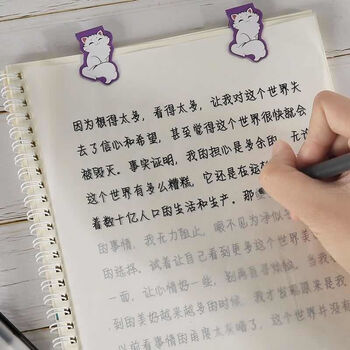 因为想得太多，看得太多，让我对这个世界失
去了信心和希望，甚至觉得这个世界很快就会
被毁灭。事实证明，我的担心是多余的，无论
这个世界有多么糟糕，它还是在这
着数十亿人口的生活和生产。那
的事情，我无力阻止，眼不见为净似
的选择，试着让自己看到更多这个世界美
一面，让心情好一些，别再自寻烦恼。当我
到的美好越来越多的时候，我才发现原来是我
以前看事情的角度太荣幸了，这个世界并没有